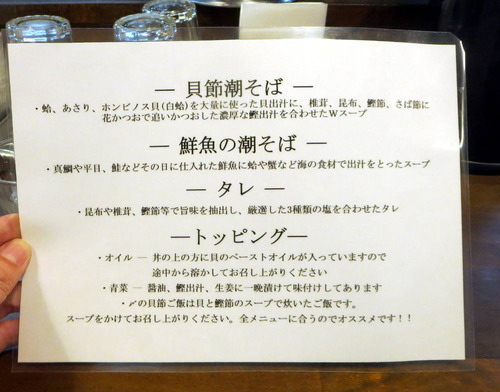 ― 貝節潮そば ―
・蛤、あさり、ホンビノス貝(白蛤)を大量に使った貝出汁に、椎茸、昆布、鰹節、さば節に
花かつおで追いかつおした濃厚な鰹出汁を合わせたWスープ
― 鮮魚の潮そば ―
・真鯛や平目、鮭などその日に仕入れた鮮魚に蛤や蟹など海の食材で出汁をとったスープ
― タレ ―
・昆布や椎茸、鰹節等で旨味を抽出し、厳選した3種類の塩を合わせたタレ
―トッピング―
・オイル ― 丼の上の方に貝のペーストオイルが入っていますので
途中から溶かしてお召し上がりください
・青菜 ― 醤油、鰹出汁、生姜に一晩漬けて味付けしてあります
・〆の貝節ご飯は貝と鰹節のスープで炊いたご飯です。
スープをかけてお召し上がりください。全メニューに合うのでオススメです！！